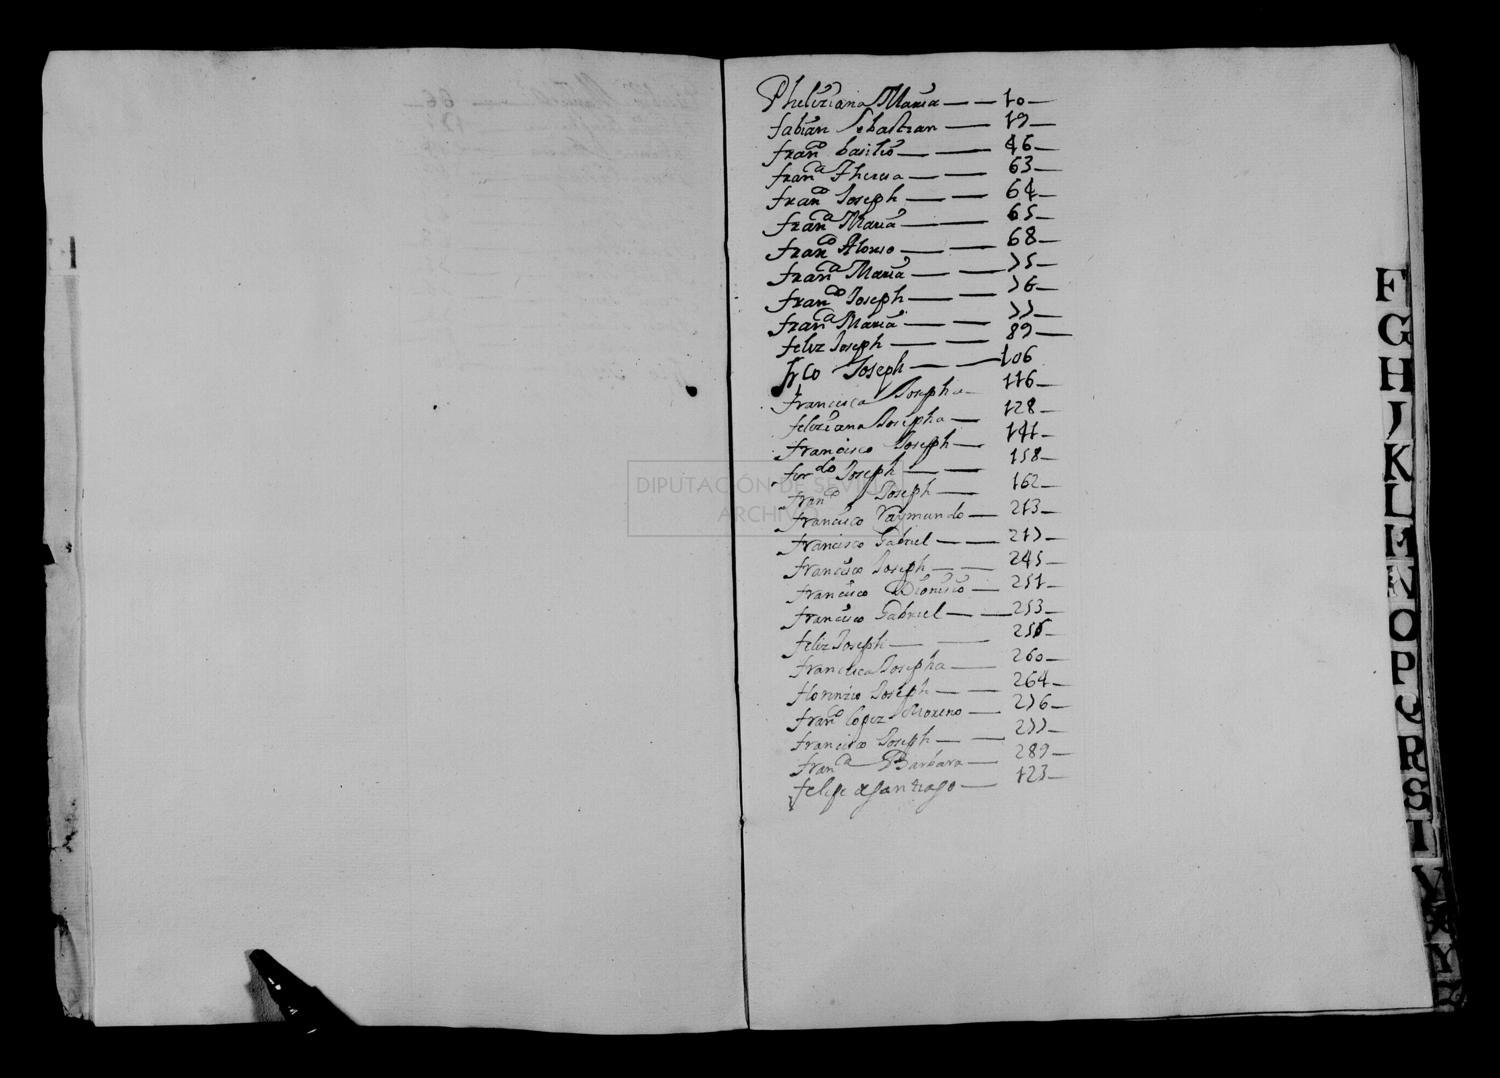 Pheliziana Maria 10
fabian Sebastian 19
fran.co basilio 46
fran.ca Theresa 63
fran.co Joseph 64
fran.ca Maria 65
fran.co Alonso 68
fran.ca Maria 75
fran.co Joseph 76
fran.ca Maria 77
feliz Joseph 89
Joseph 106
Francisca Josepha 116
feliziana Josepha 128
francisco Joseph 141
fer.do Joseph 158
fran.co Joseph 162
francisco Raymundo 213
francisco Gabriel 217
francisco Joseph 245
francisco Dionisio 251
francisco Gabriel 253
feliz Joseph 256
francisca Josepha 260
florenzio Joseph 264
fran.co lopez Moreno 276
francisco Joseph 277
fran.ca Barbara 289
felipe Santiago 123
DIPUTACIÓN DE SEVILLA
ARCHIVO
F
G
H
J
K
L
N
O
P
Q
R
S
T
V
X
Y